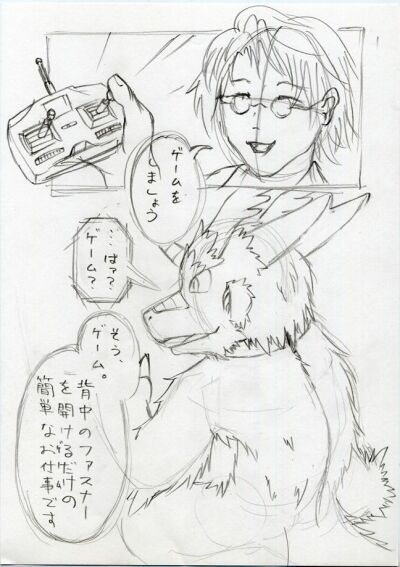 ゲームを
しましょう
…はァ？
ゲーム？
そう、
ゲーム。
背中のファスナー
を開けるだけの
簡単なお仕事です